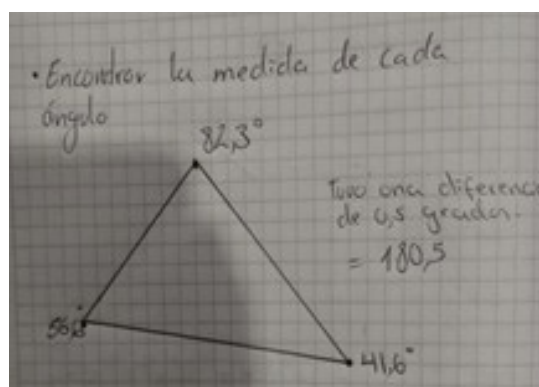 • Encontrar la medida de cada
ángulo
82,3°
Tuvo una diferencia
de 0,5 grados.
= 180,5
41,6°